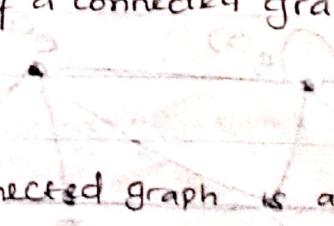 f a connected gra
nected graph is a